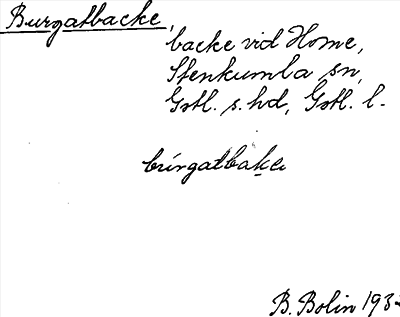 Burgatbacke,
backe vid Home,
Stenkumla sn,
Gotl. s. hd, Gotl. l.
búrgatbake
B. Bolin 193